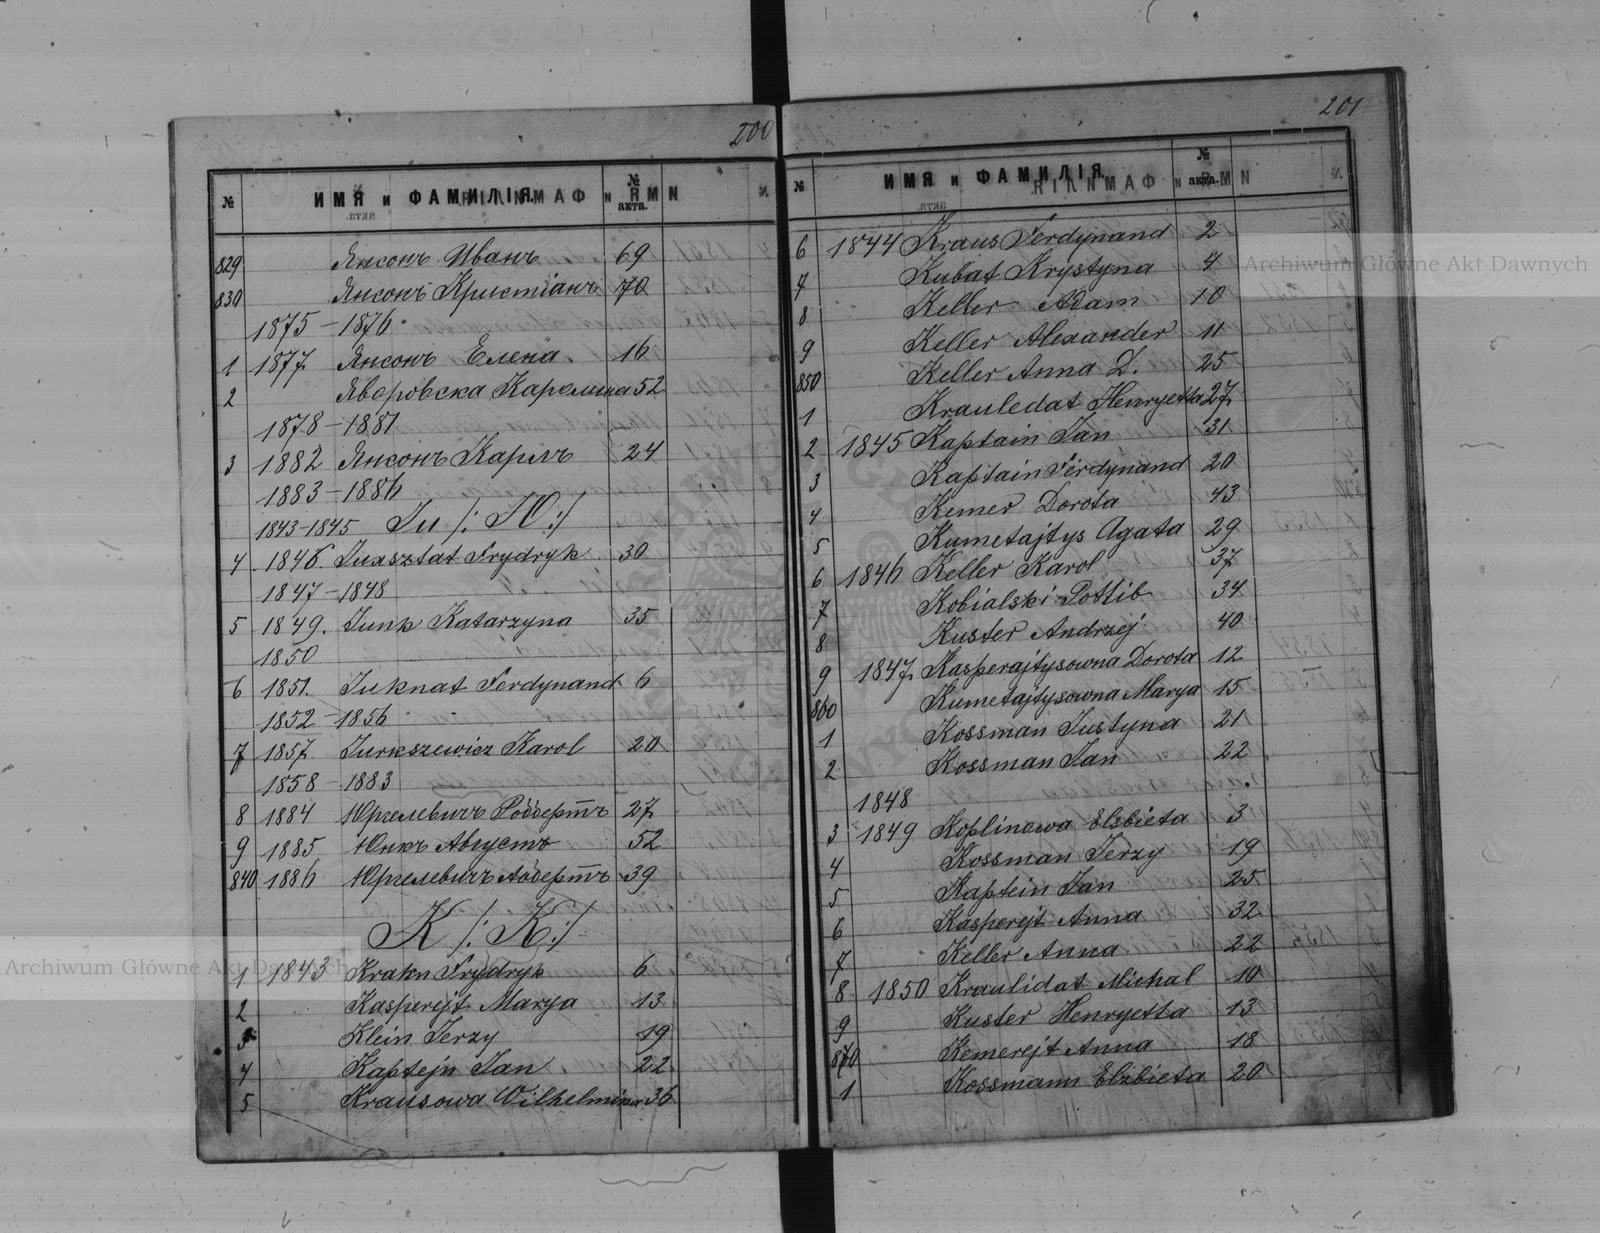 200
№ ИМЯ и ФАМИЛІЯ. № акта.
829 Янсонъ Иванъ 69
830 Янсонъ Кристіанъ 70
1875 - 1876
1 1877 Янсонъ Елена. 16
2 Яворовска Каролина 52
1878 - 1881
3 1882 Янсонъ Карлъ 24
1883 - 1886
1843-1845 Ju /: Ю :/
4 1846. Juasztat Frydryk 30
1847 - 1848
5 1849. Junk Katarzyna 35
1850
6 1851. Juknat Ferdynand 6
1852 - 1856
7 1857. Jurkszewicz Karol 20
1858 - 1883
8 1884 Юргелевичъ Роббертъ 27
9 1885 Юнкъ Августъ 52
840 1886 Юргелевичъ Адбертъ 39
K /: K :/
1 1843 Krakn Frydryk 6
2 Kasperejt Marya 13
3 Klein Jerzy 19
4 Kaptejn Jan 22
5 Krausowa Wilhelmina 36
201
№ ИМЯ и ФАМИЛІЯ. № акта.
6 1844 Kraus Ferdynand 2
7 Kubat Krystyna 4
8 Keller Adam 10
9 Keller Alexander 11
850 Keller Anna D. 25
1 Krauledat Henryetta 27
2 1845 Kaptain Jan 31
3 Kaptain Ferdynand 20
4 Kemer Dorota 43
5 Kumetajtys Agata 29
6 1846 Keller Karol 37
7 Kobialski Gottlib 34
8 Kuster Andrzej 40
9 1847. Kasperajtysowna Dorota 12
860 Kumetajtysowna Marya 15
1 Kossman Justyna 21
2 Kossman Jan 22
1848
3 1849 Koplinowa Elsbieta 3
4 Kossman Jerzy 19
5 Kaptein Jan 25
6 Kasperejt Anna 32
7 Keller Anna 22
8 1850 Kraulidat Michal 10
9 Kuster Henryetta 13
870 Kemerejt Anna 18
1 Kossmann Elzbieta 20
Archiwum Główne Akt Dawnych
Archiwum Główne Akt Dawnych